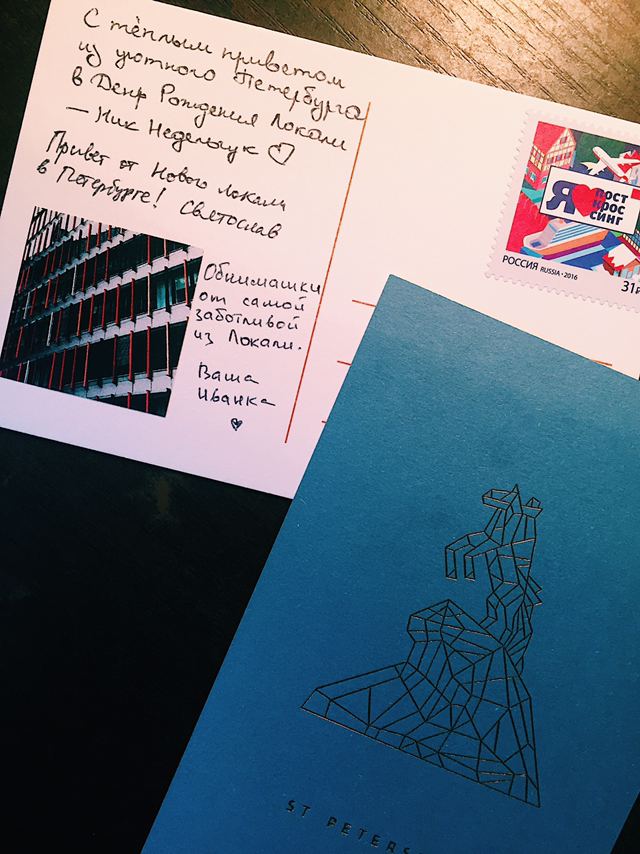 С тёплым приветом
из уютного Петербурга
в День Рождения Локали
— Ник Недельчук ♡
Привет от Нового Локали
в Петербурге! Святослав
Обнимашки
от самой
заботливой
из Локали.
Ваша
Иванка
♡
Я ПОСТ
КРОС
СИНГ
РОССИЯ RUSSIA • 2016
31
ST PETERS